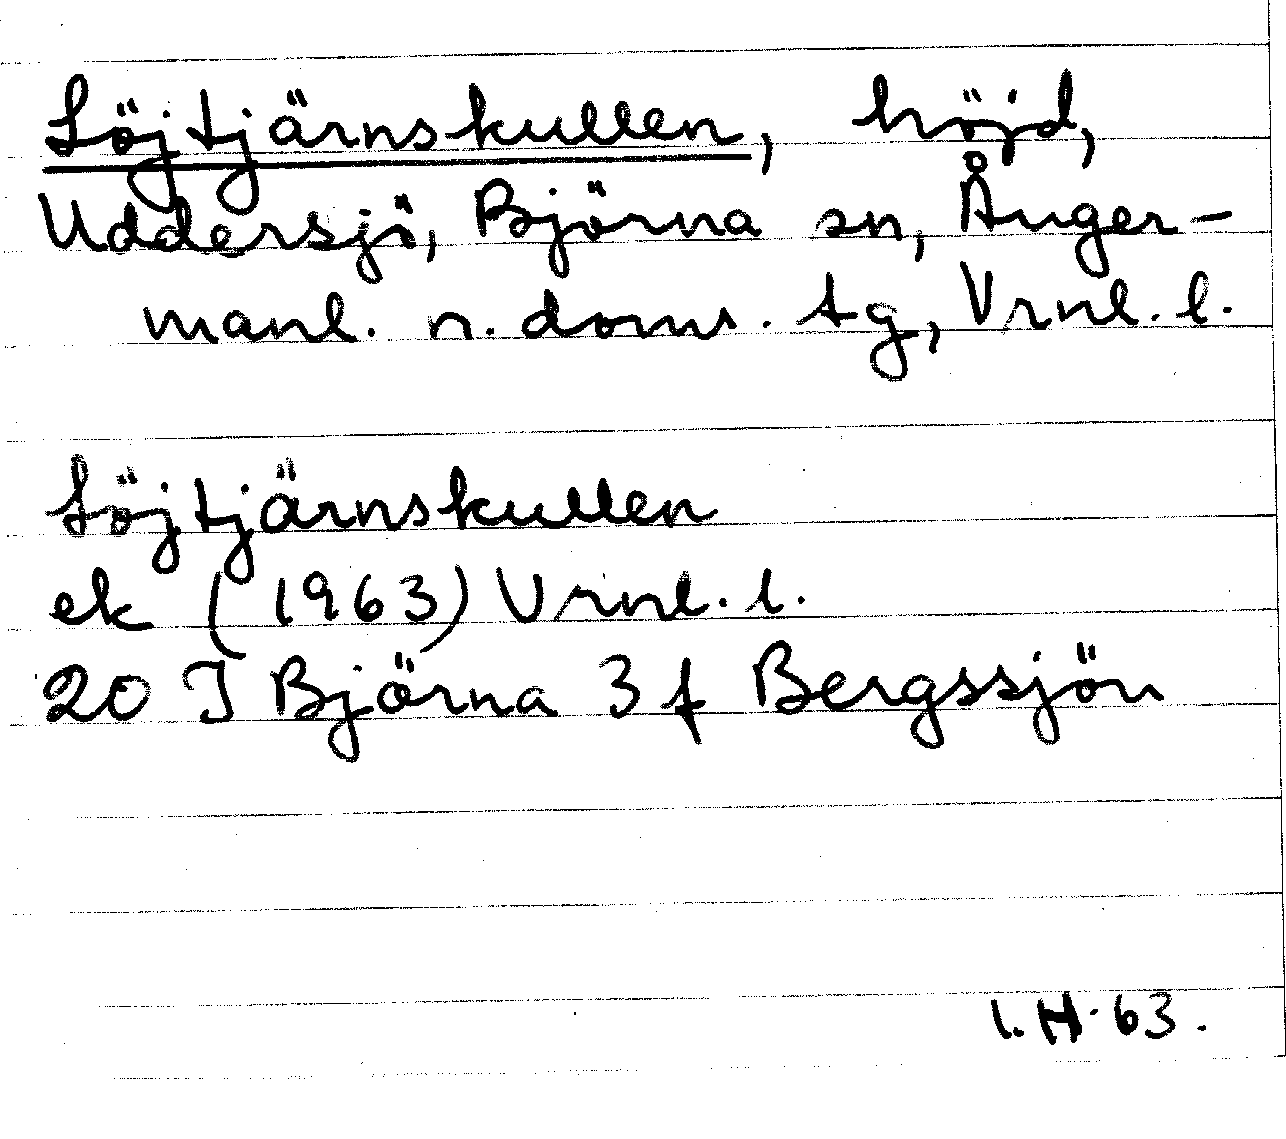 Löjtjärnskullen, höjd,
Uddersjö, Björna sn, Ånger-
manl. n. doms. tg, Vrnl. l.
Löjtjärnskullen
ek (1963) Vrnl. l.
20 J Björna 3 f Bergssjön
I. H. 63.